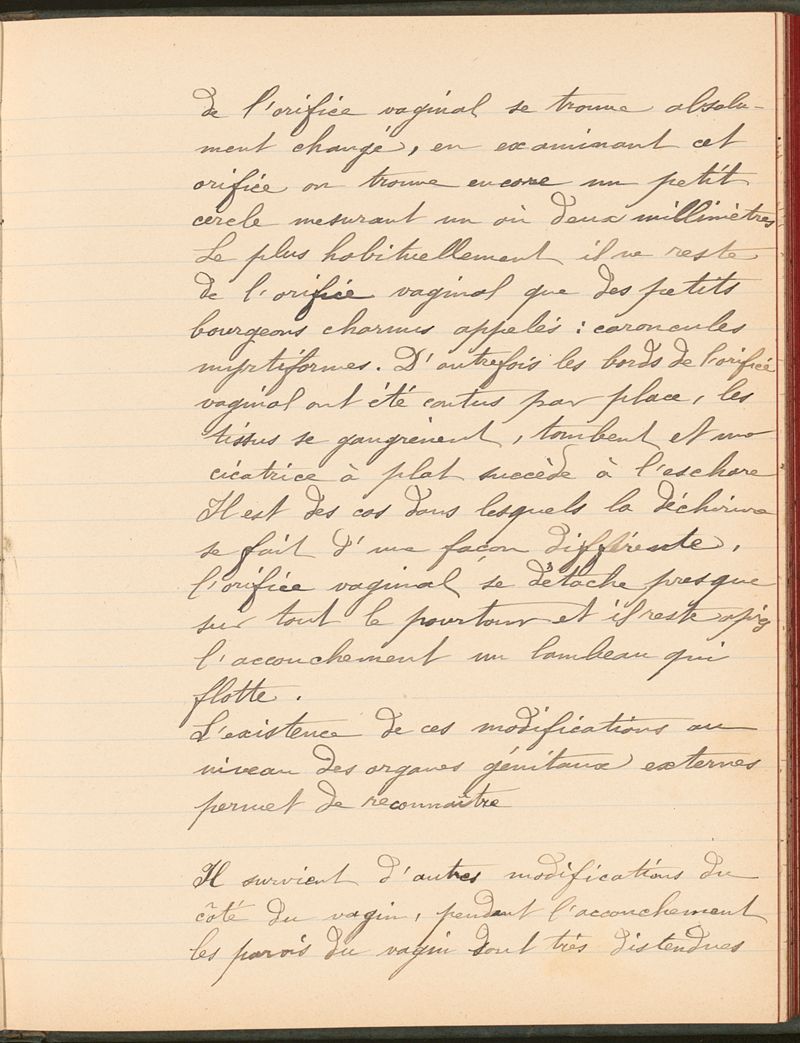 de l'orifice vaginal se trouve absolu-
ment changé, en examinant cet
orifice on trouve encore un petit
cercle mesurant un où deux millimètres
Le plus habituellement il ne reste
de l'orifice vaginal que des petits
bourgeons charnus appelés : caroncules
myrtiformes. D'autrefois les bords de l'orifice
vaginal ont été contus par place, les
tissus se gangrènent, tombent et une
cicatrice à plat succède à l'eschare
Il est des cas dans lesquels la déchirure
se fait d'une façon différente,
l'orifice vaginal se détache presque
sur tout le pourtour et il reste après
l'accouchement un lambeau qui
flotte.
L'existence de ces modifications au
niveau des organes génitaux externes
permet de reconnaître
Il survient d'autres modifications du
côté du vagin, pendant l'accouchement
les parois du vagin sont très distendues